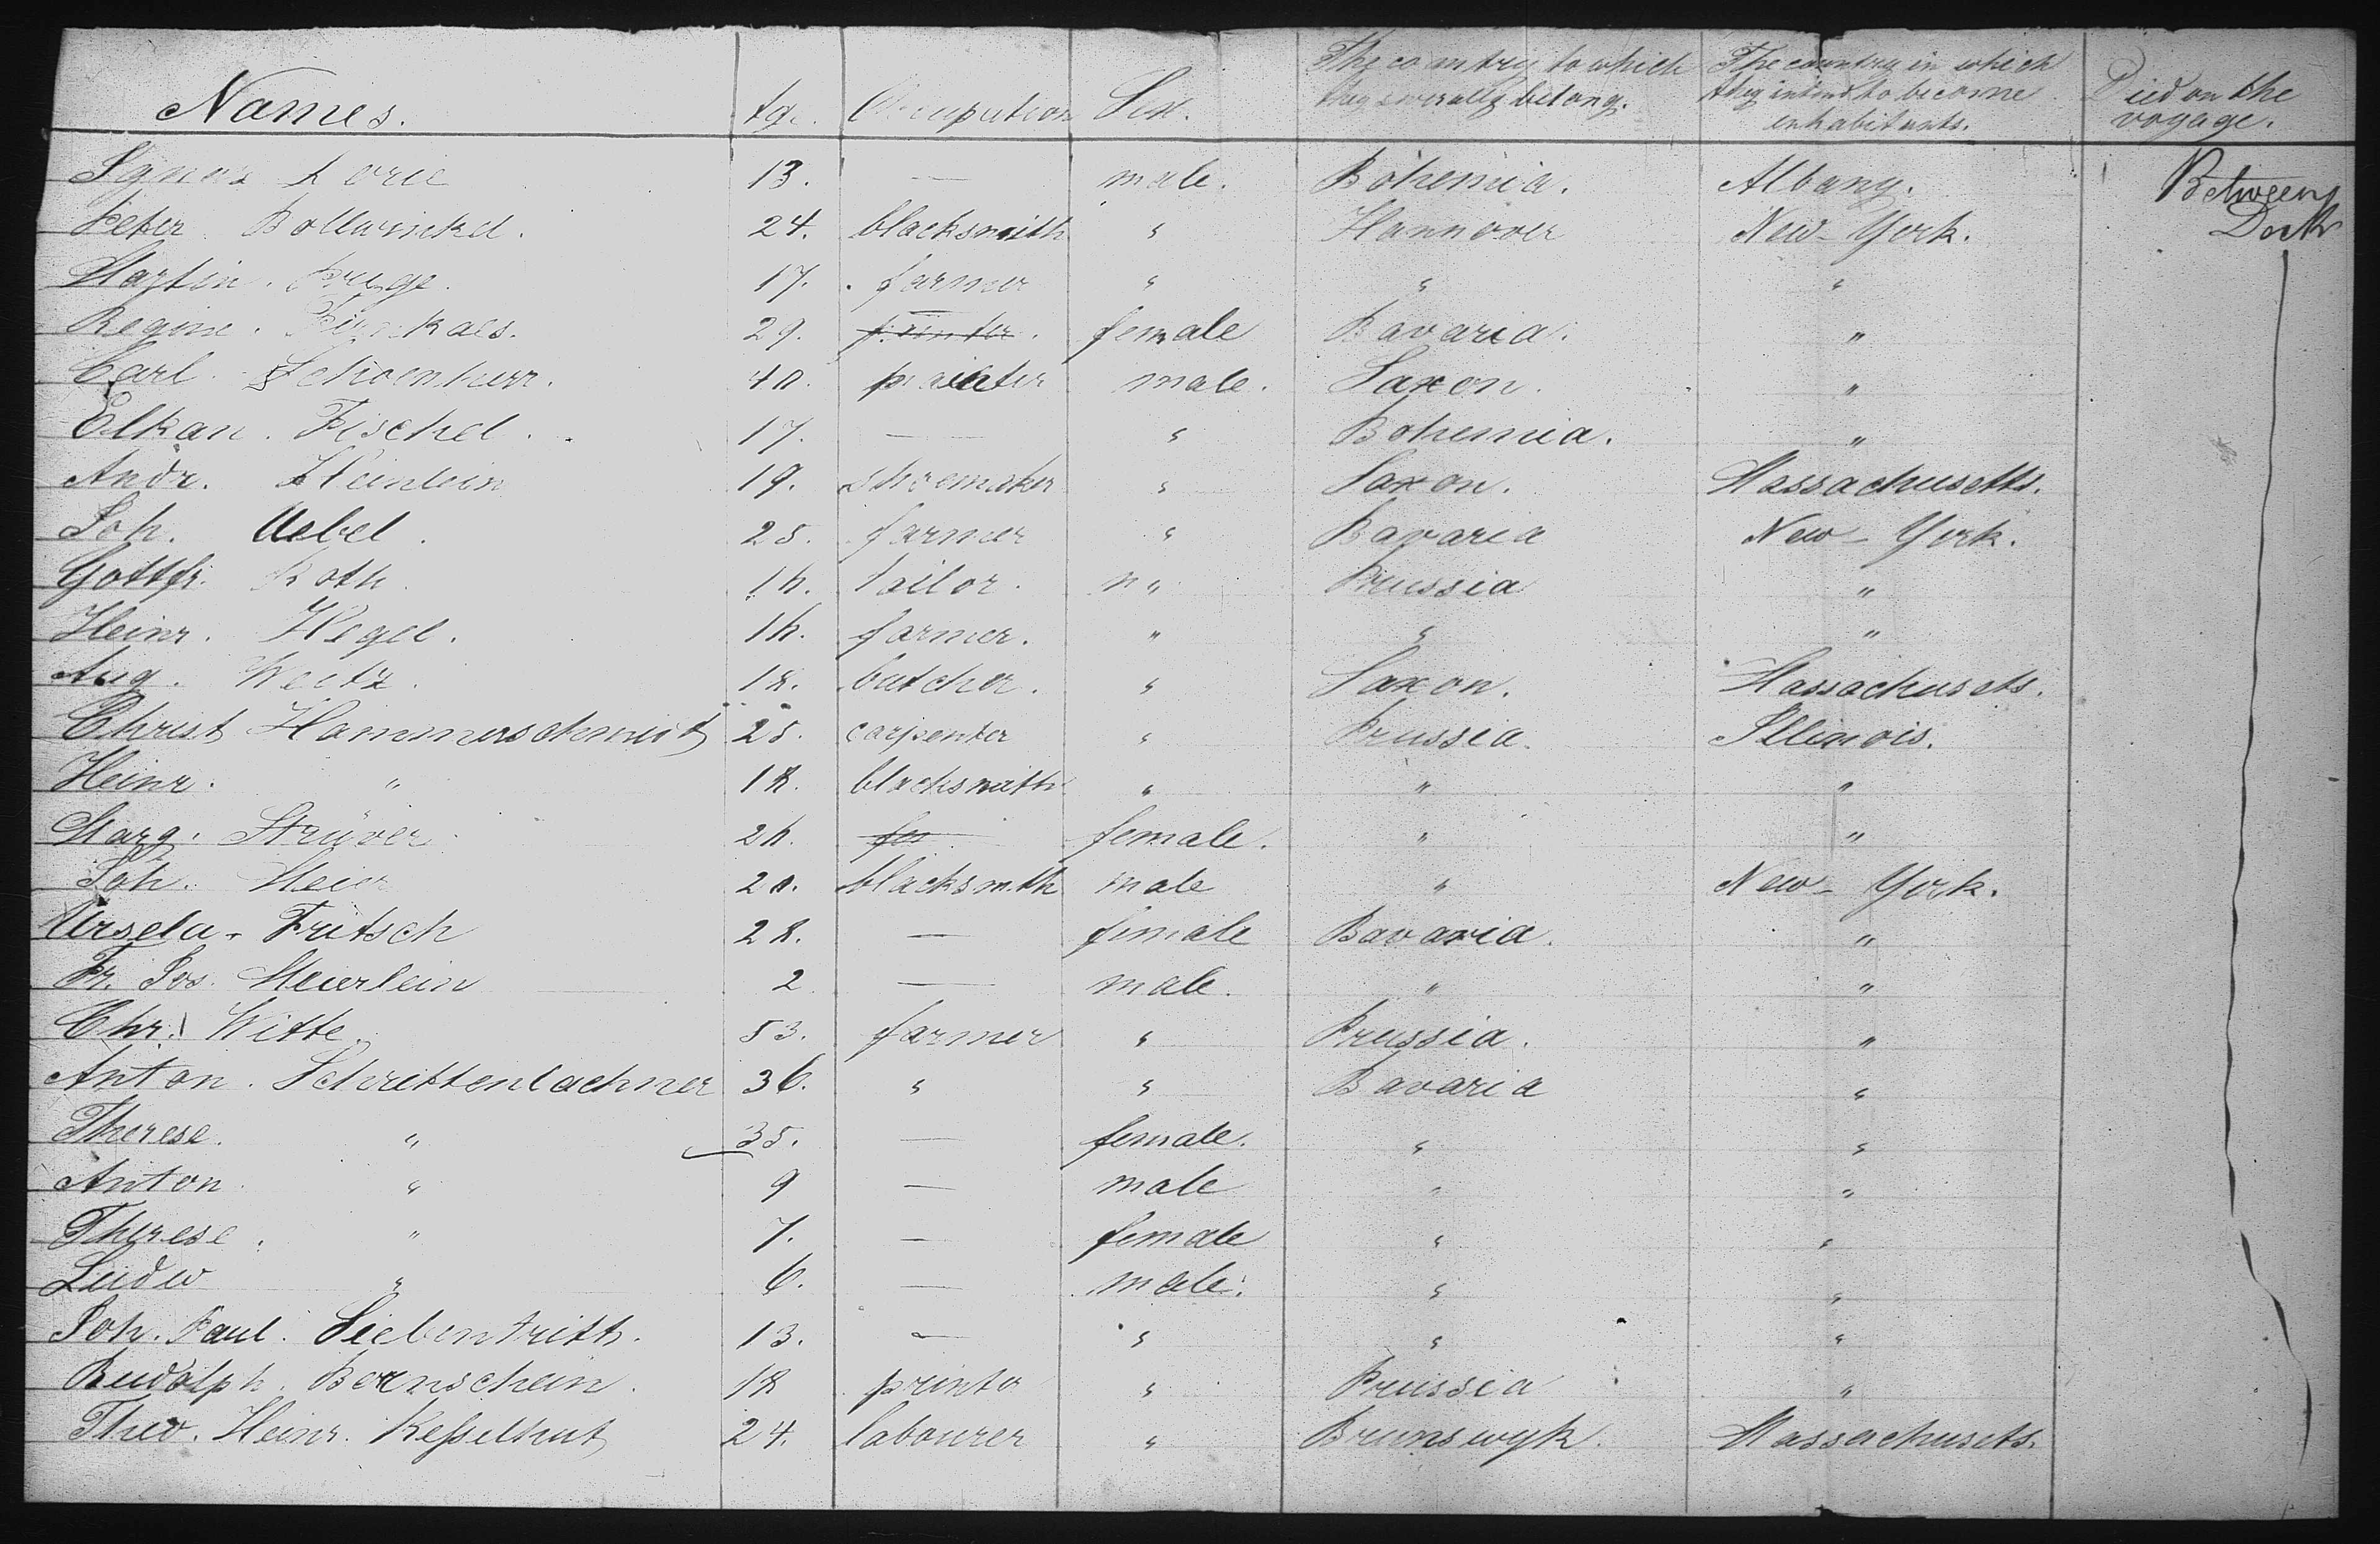 Names. Age. Occupation Sex. The country to which they severally belong. The country in which they intend to become inhabitants. Died on the voyage.
Ignaz 13. — male. Bohemia. Albany. Between
Peter Bollwinkel. 24. blacksmith " Hannover New-York. Deck
Martin. 17. farmer " " "
Regine. 29. female Bavaria. "
Carl Schoenherr. 40. male. Saxon. "
Elkan. Fischel. 17. — " Bohemia. "
Andr. Heinlein 19. shoemaker " Saxon. Massachusetts.
Joh. Uebel. 25. farmer " Bavaria New-York.
Gottfr. Roth. 16. tailor. " Prussia "
Heinr. Hegel. 16. farmer. " " "
Aug. Weitz. 18. butcher. " Saxon. Massachusets.
Christ Hammerschmidt 25. carpenter " Prussia. Illinois.
Heinr. " 18. blacksmith " " "
Marg. Strüver 26. female. " "
Joh. Meier 20. blacksmth male " New-York.
Ursula. Fritsch 28. — female Bavaria. "
Fr. Jos. Meierlein 2 — male. " "
Chr. Witte. 53. farmer " Prussia. "
Anton. Schrettenlachner 36. " " Bavaria "
Therese. " 35. — female. " "
Anton. " 9 — male " "
Therese. " 7. — female " "
Ludw " 6. — male. " "
Joh. Paul. Siebentritt. 13. — " " "
Rudolph. Bernschein. 18 printer " Prussia "
Theo. Heinr. Kesselhut 24. labourer " Brunswyk. Massachusets.